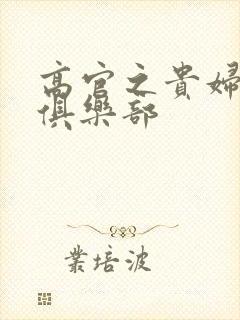 高官之貴婦
俱樂部
業培波